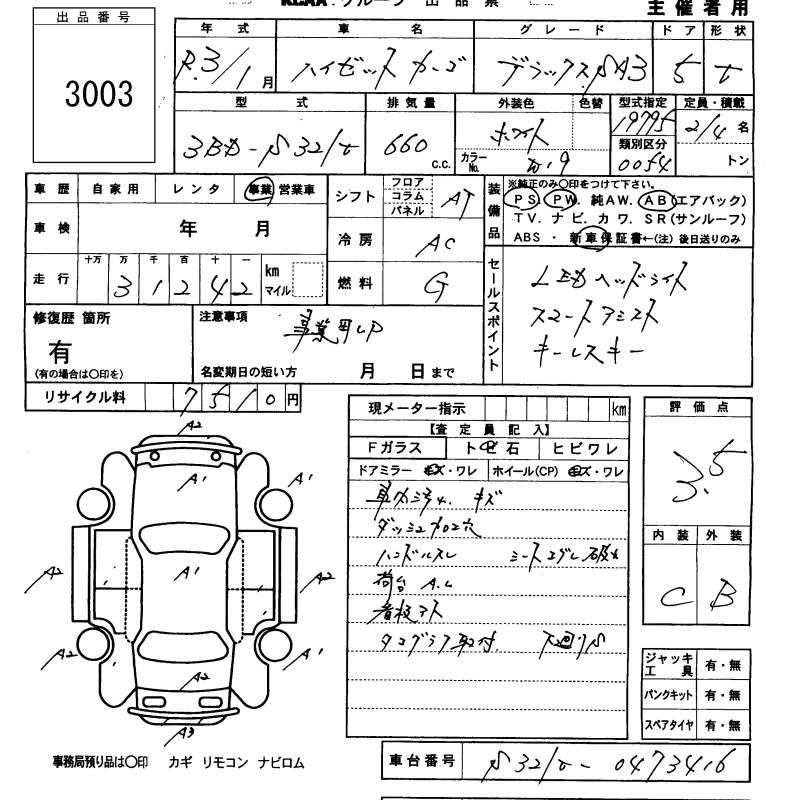 出品番号
3003
KCAA. グループ 出品票
主催者用
年式 車名 グレード ドア 形状
R.3/1月 ハイゼット カーゴ デラックス.SA3 5 V
型式 排気量 外装色 色替 型式指定 定員・積載
3BD-S321V 660 c.c. ホワイト カラーNo. W19 19775 2/4名
類別区分
0054 トン
車歴 自家用 レンタ 事業 営業車 シフト フロア コラム パネル AT
車検 年 月 冷房 AC
走行 十万 万 千 百 十 一 km マイル
31242
燃料 G
装備品 ※純正のみ〇印をつけて下さい。
PS. PW. 純AW. AB(エアバック)
TV. ナビ. カワ. SR(サンルーフ)
ABS ・ 新車保証書←(注)後日送りのみ
セールスポイント
LEDヘッドライト
スマートアシスト
キーレスキー
修復歴 箇所
有
(有の場合は〇印を)
注意事項
事業用UP
名変期日の短い方 月 日まで
リサイクル料 7510円
現メーター指示 km
【査定員記入】
Fガラス トビ石 ヒビワレ
ドアミラー キズ・ワレ ホイール(CP) キズ・ワレ
キズ
ダッシュ加工穴
ハンドルスレ シートコゲ
荷台 A.U
看板アト
タコグラフ取付. 下廻りS
評価点
3.5
内装 外装
C B
ジャッキ工具 有・無
パンクキット 有・無
スペアタイヤ 有・無
A2
A1
A1 A1
A2 A1 A2
A2 A1
A2
A3
事務局預り品は〇印 カギ リモコン ナビロム
車台番号 S321V-0473416